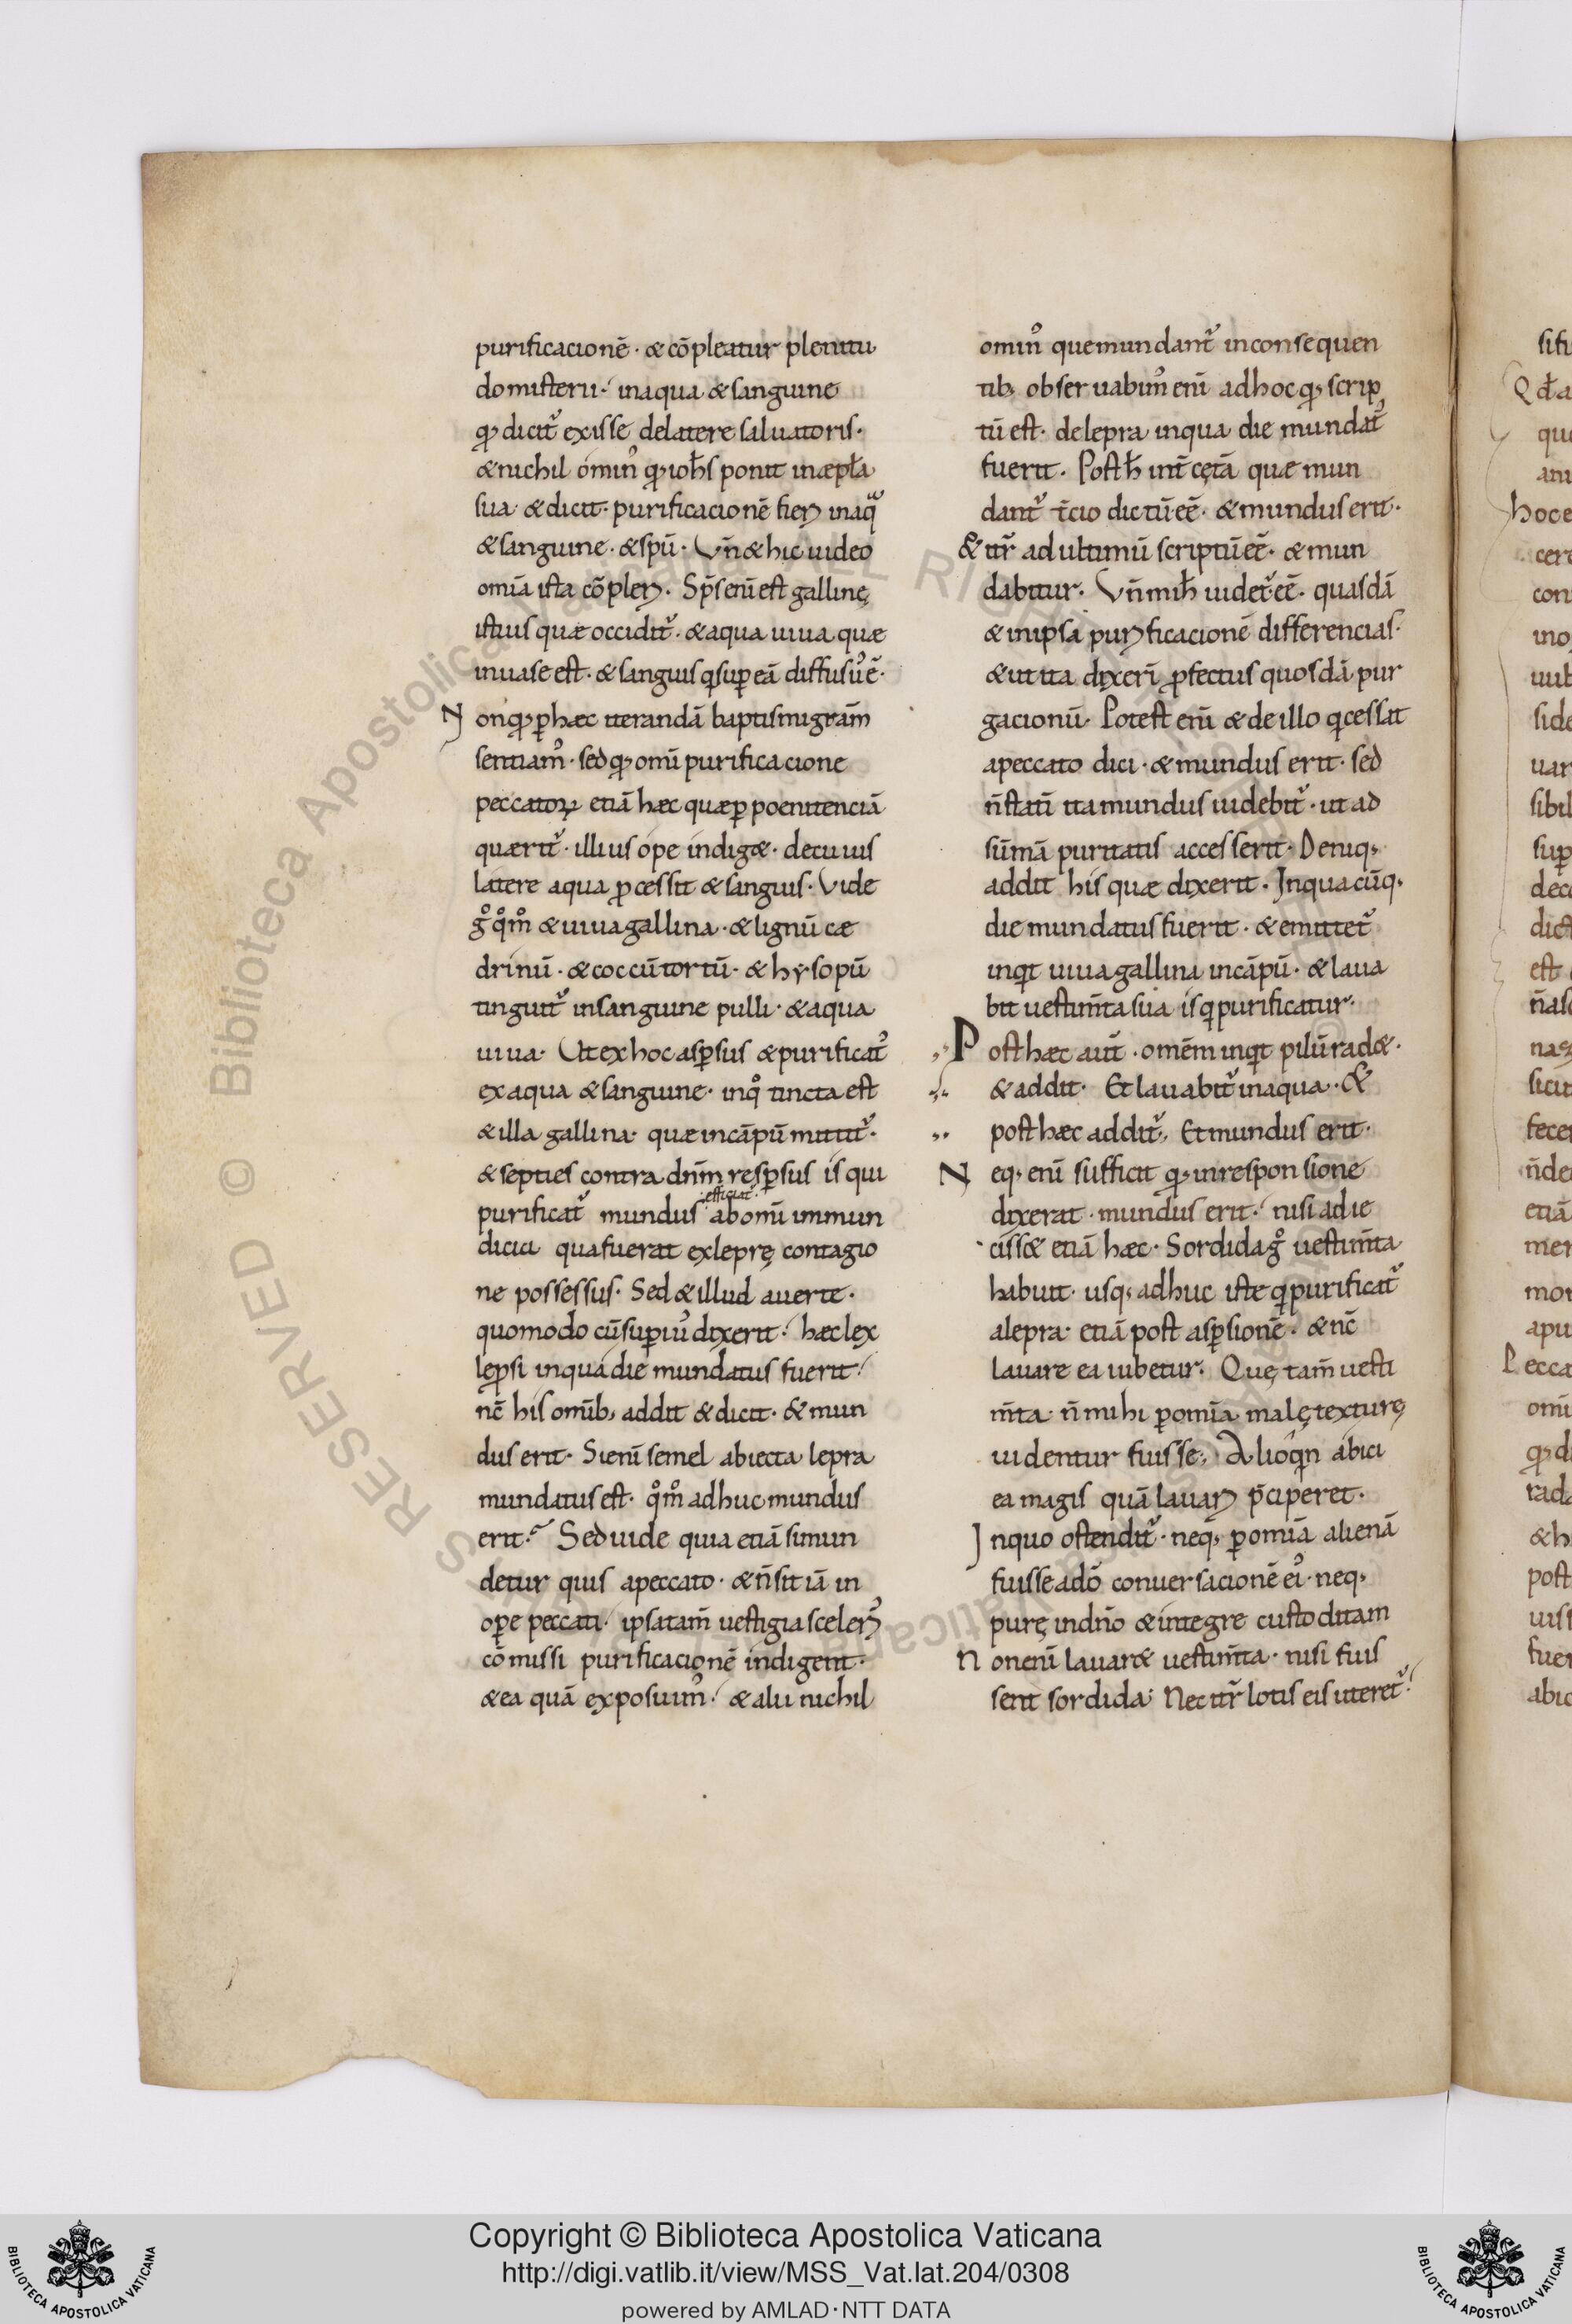 purificacionē · & cōpleatur plenitu
do misterii · in aqua & sanguine
qđ dicit᷑ exisse de latere saluatoris ·
& nichil omin᷒ qđ ioħs ponit in æpl̄a
sua · & dicit · purificacionē fieri in aqua
& sanguine · & spū · Vn̄ & hic uideo
omīa ista cōpleri · Sp̄s enī est gallinę
istius quæ occidit᷑ · & aqua uiua quæ
in uase est · & sanguis q̄ sup eā diffusus ē ·
Non qđ p̱ hæc iterandā baptismi grām
sentiam᷒ · sed qđ omī purificacione
peccatoꝝ etiā hæc quæ p̱ poenitenciā
quærit᷑ · illius ope indig& · de cuius
latere aqua p̱cessit & sanguis · Vide
g̊ q̊m̊ & uiua gallina · & lignū cæ
drinū · & coccū tortū · & hysopū
tinguit᷑ in sanguine pulli · & aqua
uiua · Ut ex hoc asp̱sus & purificat᷒
ex aqua & sanguine · in q̊ tincta est
& illa gallina · quæ in cāpū mittit᷑ ·
& septies contra dnm̄ resp̱sus is qui
purificat᷑ mundus efficiat᷑ ab omī immun
dicia qua fuerat ex leprę contagio
ne possessus · Sed & illud auerte ·
quomodo cū sup̱iu᷒ dixerit · hæc lex
lep̱si in qua die mundatus fuerit ·
nc̄ his omīb; addit & dicit · & mun
dus erit · Si enī semel abiecta lepra
mundatus est · q̊m̊ adhuc mundus
erit · Sed uide quia etiā si mun
detur quis a peccato · & n̄ sit iā in
ope peccati · ipsa tam̄ uestigia sceleris
cōmissi purificacionē indigent ·
& ea quā exposuim᷒ · & alii nichil
omin᷒ que mundant᷑ in consequen
tib; obseruabim᷒ enī adhoc qđ scrip
tū est · de lepra in qua die mundat᷒
fuerit · Post ħ int̄ cętā quæ mun
dant᷑ t̄cio dictū ēē · & mundus erit ·
& itr̄ ad ultimū scriptū ēē · & mun
dabitur · Vn̄ mih̄ uidet᷑ ēē · quasdā
& in ipsa purificacionē differencias ·
& ut ita dixerī p̱fectus quosdā pur
gacionū · Potest enī & de illo q̱ cessit
a peccato dici · & mundus erit · sed
n̄ statī ita mundus uidebit᷑ · ut ad
sūmā puritatis accesserit · Deniq;
addit his quæ dixerit · In quacūq;
die mundatus fuerit · & emittet᷑
inqt uiua gallina in cāpū · & laua
bit uestim̄ta sua is q̱ purificatur ·
Post hæc aut̄ · omēm inqt pilū rad& ·
& addit · Et lauabit᷑ in aqua · &
post hæc addit᷑ · Et mundus erit ·
Neq; enī sufficit qđ in responsione
dixerat · mundus erit · nisi adie
ciss& etiā hæc · Sordida g̊ uestim̄ta
habuit · usq; adhuc iste q̱ purificat᷑
a lepra · etiā post asp̱sionē · & nc̄
lauare ea iubetur · Quę tam̄ uesti
m̄ta n̄ mihi p̱ omīa malę texturę
uidentur fuisse · Alioq̱n abici
ea magis quā lauari p̄ciperet ·
In quo ostendit᷑ · neq; p̱ omīa alienā
fuisse a dō conuersacionē ei᷒ · neq;
purę in dn̄o & integre custoditam
Non enī lauar& uestim̄ta · nisi fuis
sent sordida · Nec itr̄ lotis eis uteret᷑
Copyright © Biblioteca Apostolica Vaticana
http://digi.vatlib.it/view/MSS_Vat.lat.204/0308
powered by AMLAD · NTT DATA